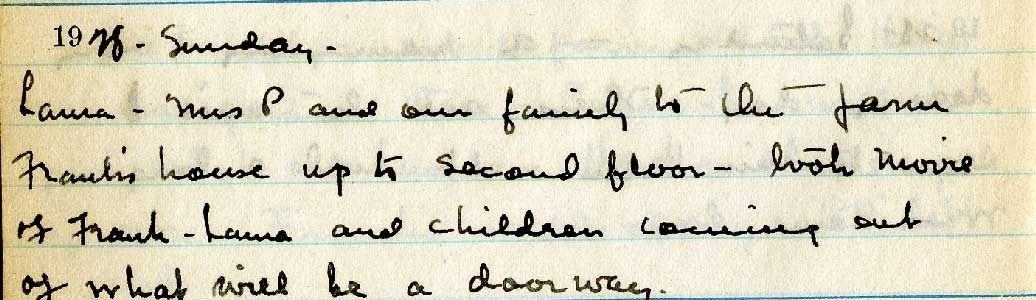 19 38. Sunday.
Laura - Mrs P and our family to the farm
Frank's house up to second floor - took movie
of Frank - Laura and children coming out
of what will be a doorway.